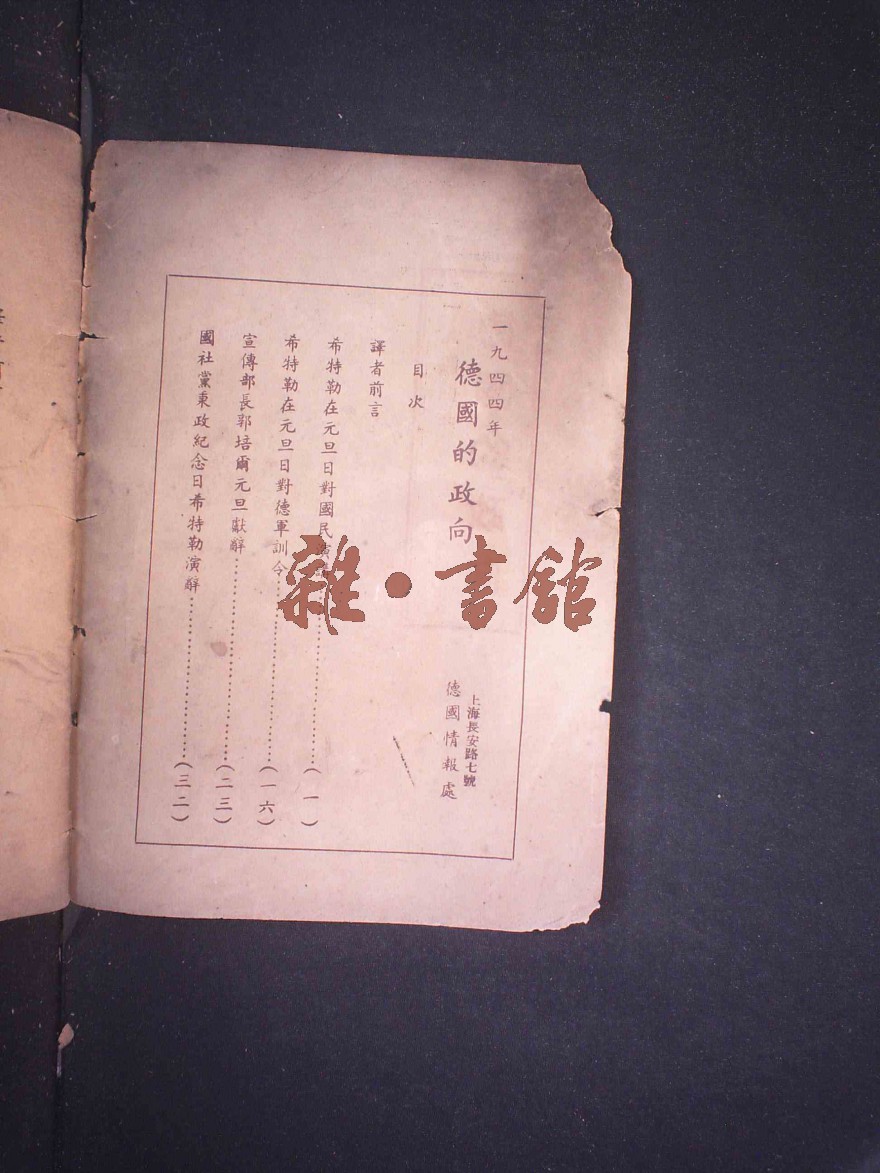 一九四四年
德國的政向
上海長安路七號
德國情報處
目次
譯者前言
希特勒在元旦日對國民演……(一)
希特勒在元旦日對德軍訓令……(一六)
宣傳部長郭培爾元旦獻辭……(二三)
國社黨秉政紀念日希特勒演辭……(三二)
雜·書館